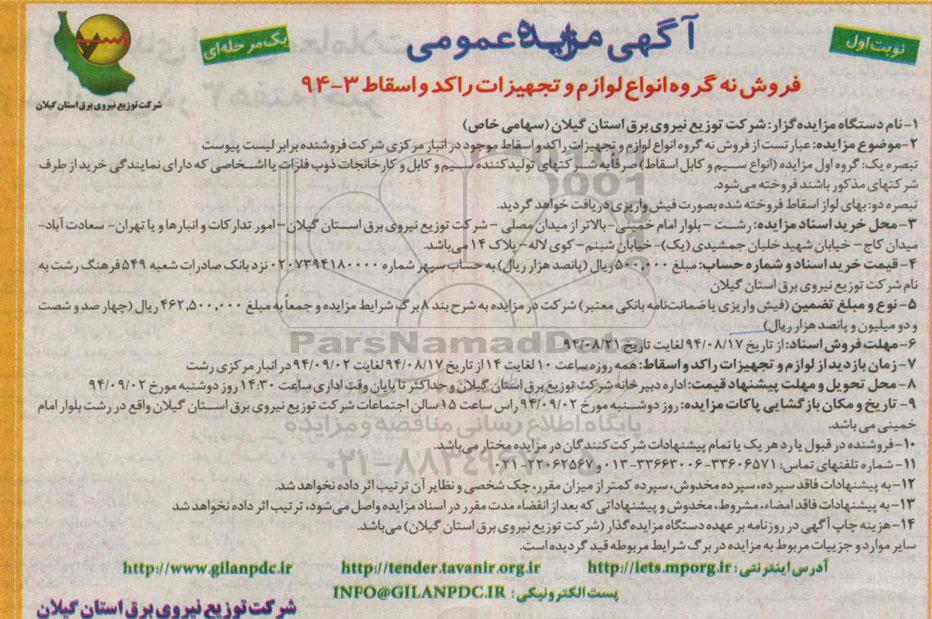 نوبت اول
آگهی مزایده عمومی
یک مرحله‌ای
شرکت توزیع نیروی برق استان گیلان
فروش نه گروه انواع لوازم و تجهیزات راکد و اسقاط ۳-۹۴
۱- نام دستگاه مزایده گزار: شرکت توزیع نیروی برق استان گیلان (سهامی خاص)
۲- موضوع مزایده: عبارتست از فروش نه گروه انواع لوازم و تجهیزات راکد و اسقاط موجود در انبار مرکزی شرکت فروشنده برابر لیست پیوست
تبصره یک: گروه اول مزایده (انواع سیم و کابل اسقاط) صرفاً به شرکتهای تولیدکننده سیم و کابل و کارخانجات ذوب فلزات یا اشخاصی که دارای نمایندگی خرید از طرف
شرکتهای مذکور باشند فروخته می‌شود.
تبصره دو: بهای لوازم اسقاط فروخته شده بصورت فیش واریزی دریافت خواهد گردید.
۳- محل خرید اسناد مزایده: رشت - بلوار امام خمینی - بالاتر از میدان مصلی - شرکت توزیع نیروی برق استان گیلان - امور تدارکات و انبارها و یا تهران - سعادت آباد-
میدان کاج - خیابان شهید خلبان جمشیدی (یک) - خیابان شبنم - کوی لاله - پلاک ۱۴ می‌باشد.
۴- قیمت خرید اسناد و شماره حساب: مبلغ ۵۰۰,۰۰۰ ریال (پانصد هزار ریال) به حساب سپهر شماره ۰۲۰۷۳۹۴۱۸۰۰۰۰ نزد بانک صادرات شعبه ۵۴۹ فرهنگ رشت به
نام شرکت توزیع نیروی برق استان گیلان
۵- نوع و مبلغ تضمین (فیش واریزی یا ضمانت‌نامه بانکی معتبر) شرکت در مزایده به شرح بند ۸ برگ شرایط مزایده و جمعاً به مبلغ ۴۶۲,۵۰۰,۰۰۰ ریال (چهار صد و شصت
و دو میلیون و پانصد هزار ریال)
۶- مهلت فروش اسناد: از تاریخ ۹۴/۰۸/۱۷ لغایت تاریخ ۹۴/۰۸/۲۱
۷- زمان بازدید از لوازم و تجهیزات راکد و اسقاط: همه روزه ساعت ۱۰ لغایت ۱۴ از تاریخ ۹۴/۰۸/۱۷ لغایت ۹۴/۰۹/۰۲ در انبار مرکزی رشت
۸- محل تحویل و مهلت پیشنهاد قیمت: اداره دبیرخانه شرکت توزیع برق استان گیلان و حداکثر تا پایان وقت اداری ساعت ۱۴:۳۰ روز دوشنبه مورخ ۹۴/۰۹/۰۲
۹- تاریخ و مکان بازگشایی پاکات مزایده: روز دوشنبه مورخ ۹۴/۰۹/۰۲ راس ساعت ۱۵ سالن اجتماعات شرکت توزیع نیروی برق استان گیلان واقع در رشت بلوار امام
خمینی می باشد.
۱۰- فروشنده در قبول یا رد هر یک یا تمام پیشنهادات شرکت کنندگان در مزایده مختار می‌باشد.
۱۱- شماره تلفنهای تماس: ۳۳۶۰۶۵۷۱-۳۳۶۶۳۰۰۶-۰۱۳ و ۲۲۰۶۲۵۶۷-۰۲۱
۱۲- به پیشنهادات فاقد سپرده، سپرده مخدوش، سپرده کمتر از میزان مقرر، چک شخصی و نظایر آن ترتیب اثر داده نخواهد شد.
۱۳- به پیشنهادات فاقد امضاء، مشروط، مخدوش و پیشنهاداتی که بعد از انقضاء مدت مقرر در اسناد مزایده واصل می‌شود، ترتیب اثر داده نخواهد شد
۱۴- هزینه چاپ آگهی در روزنامه بر عهده دستگاه مزایده گذار (شرکت توزیع نیروی برق استان گیلان) می‌باشد.
سایر موارد و جزییات مربوط به مزایده در برگ شرایط مربوطه قید گردیده است.
آدرس اینترنتی: http://iets.mporg.ir http://tender.tavanir.org.ir http://www.gilanpdc.ir
پست الکترونیکی: INFO@GILANPDC.IR
شرکت توزیع نیروی برق استان گیلان
ParsNamadData
پایگاه اطلاع رسانی مناقصه و مزایده